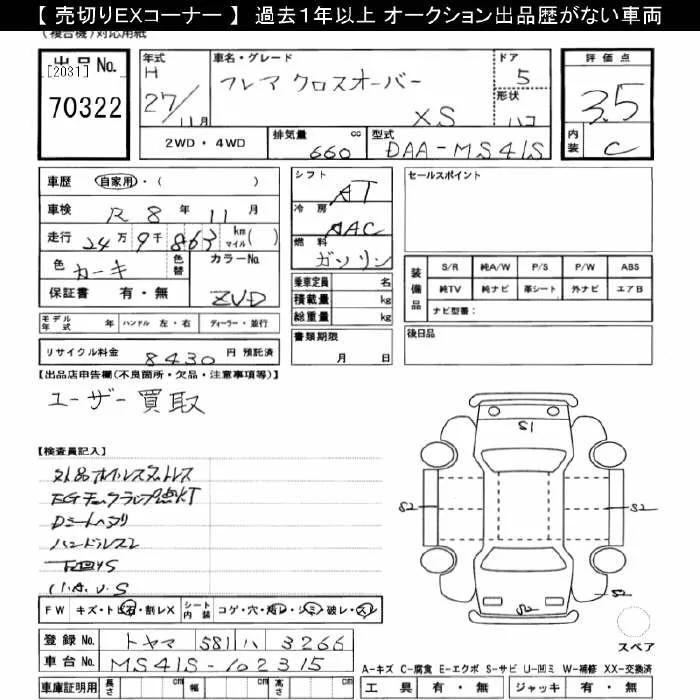 【 売切りEXコーナー 】 過去１年以上 オークション出品歴がない車両
(複合機)対応用紙
出品No.
[2031]
70322
年式
H
27/11月
車名・グレード
プレマ クロスオーバー
XS
ドア
5
形状
ハコ
評価点
3.5
内装
C
2WD・4WD
排気量 660 cc
型式 DAA-MS41S
車歴 自家用・( )
車検 R 8 年 11 月
走行 24万 9千 863 km マイル( )
色 カーキ
色替
カラーNo. ZVD
保証書 有・無
モデル年式 年 ハンドル 左・右 ディーラー・並行
リサイクル料金 8430 円 預託済
シフト AT
冷房 AAC
燃料 ガソリン
乗車定員 名
積載量 kg
総重量 kg
書類期限
月 日
セールスポイント
装備品
S/R 純A/W P/S P/W ABS
純TV 純ナビ 革シート 外ナビ エアB
ナビ型番：
後日品
【出品店申告欄(不良箇所・欠品・注意事項等)】
ユーザー買取
【検査員記入】
EGチェックランプ点KT
Dシートヘタリ
ハンドルスレ
下回りS
U.A.U.S
S1
S2
S2
S2
S2
スペア
FW キズ・トビ石・割レX
シート内装 コゲ・穴・切レ・シミ・破レ・スレ
登録No. トヤマ 581 ハ 3266
車台No. MS41S-102315
A-キズ C-腐食 E-エクボ S-サビ U-凹ミ W-補修 XX-交換済
車庫証明用 長さ cm 幅 cm 高さ cm
工具 有・無 ジャッキ 有・無